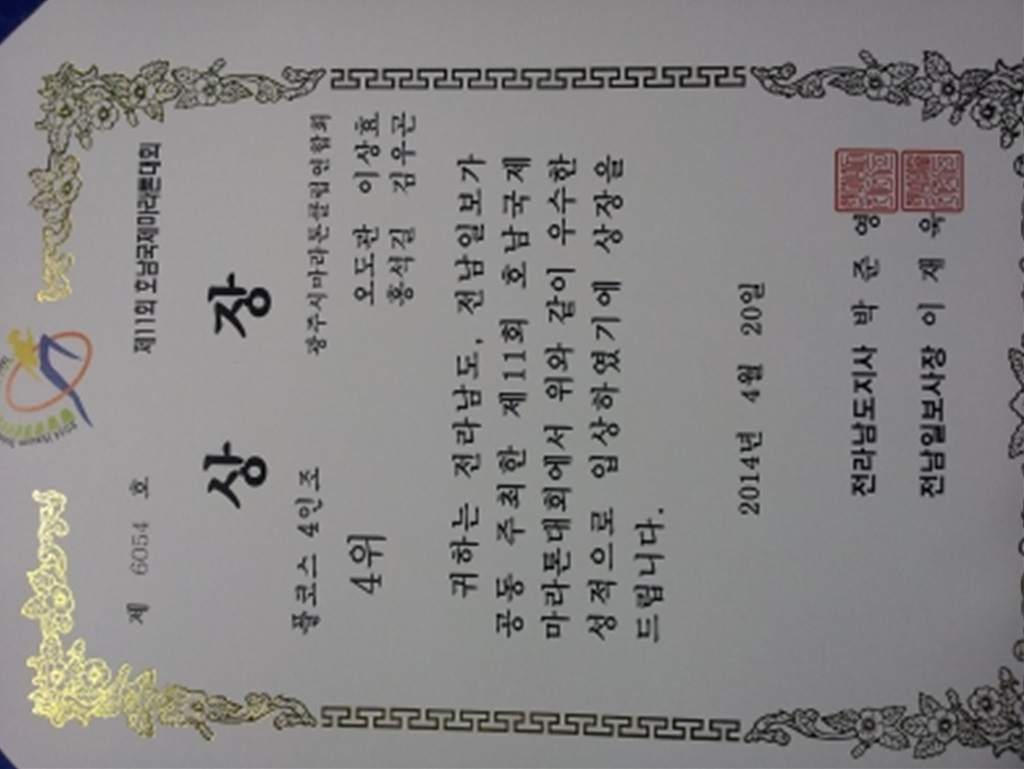 제 6054 호
제11회 호남국제마라톤대회
상 장
풀코스 4인조
광주시마라톤클럽연합회
4위
오도관 이상효
홍석길 김우곤
귀하는 전라남도, 전남일보가
공동 주최한 제11회 호남국제
마라톤대회에서 위와 같이 우수한
성적으로 입상하였기에 상장을
드립니다.
2014년 4월 20일
전라남도지사 박 준 영
전남일보사장 이 재 욱